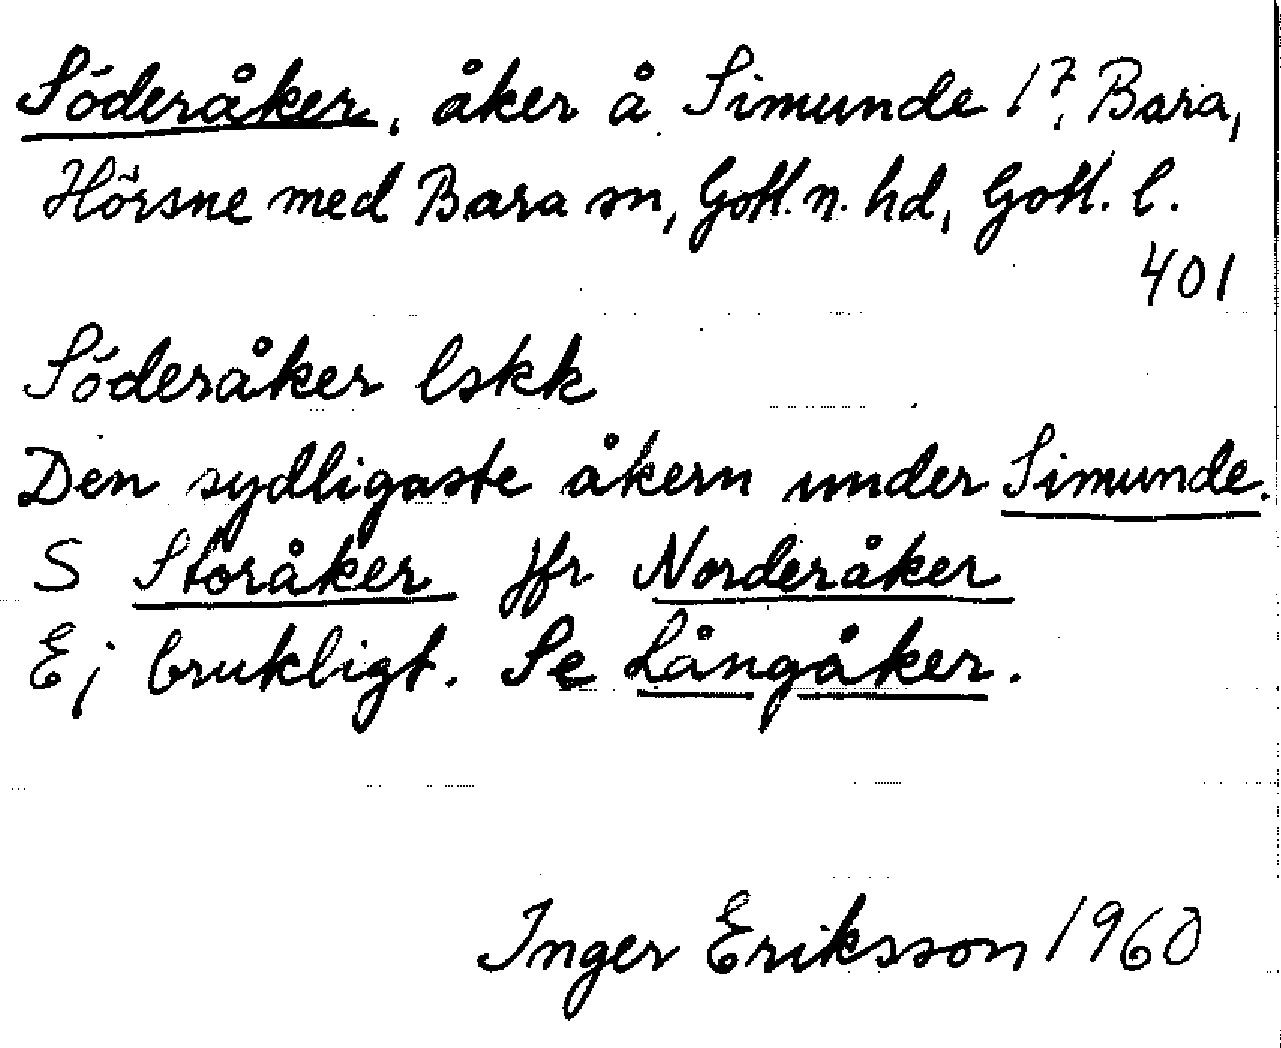 Söderåker, åker å Simunde 1?, Bara,
Hörsne med Bara sn, Gotl. n. hd, Gotl. l.
401
Söderåker lskk
Den sydligaste åkern under Simunde.
S Storåker jfr Norderåker
Ej brukligt. Se Långåker.
Inger Eriksson 1960